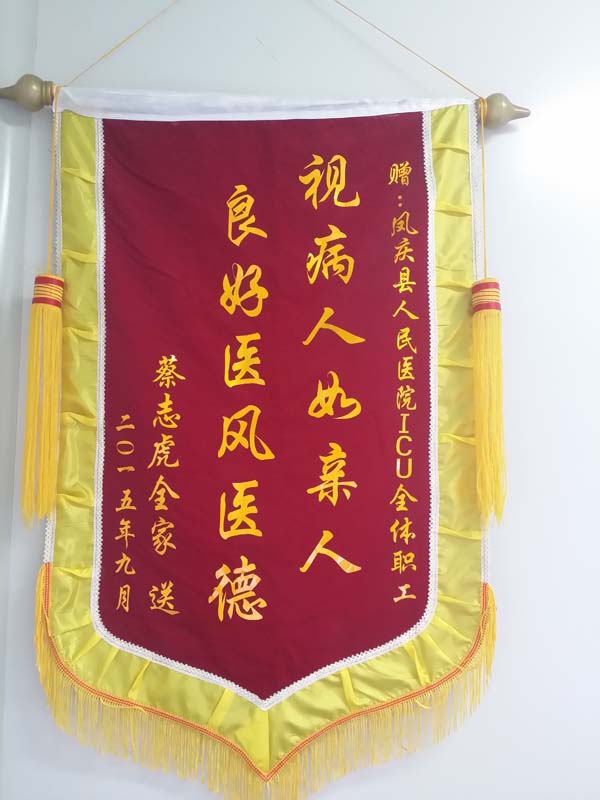 赠：凤庆县人民医院ICU全体职工
视病人如亲人
良好医风医德
蔡志虎全家 送
二〇一五年九月